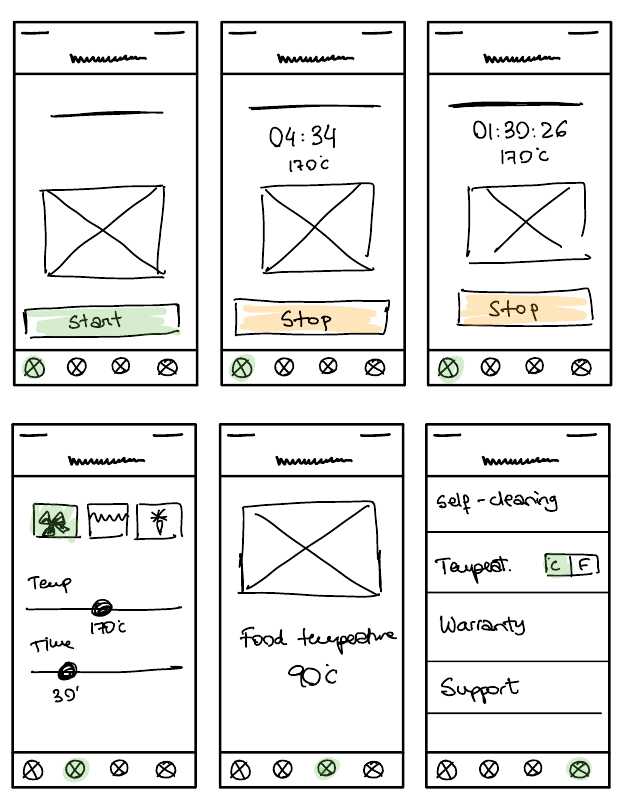 Start
04:34
170°C
Stop
01:30:26
170°C
Stop
Temp
170°C
Time
30'
Food temperature
90°C
Self-cleaning
Temperat. C F
Warranty
Support